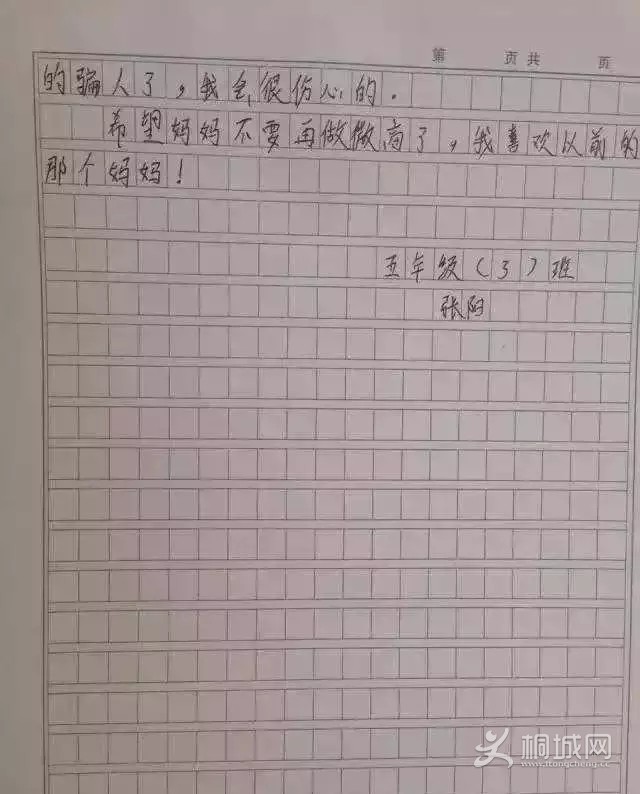 第 页共 页
的骗人了，我会很伤心的.
希望妈妈不要再做微商了，我喜欢以前的
那个妈妈！
五年级(3)班
张阳
桐城网
www.itongcheng.cc